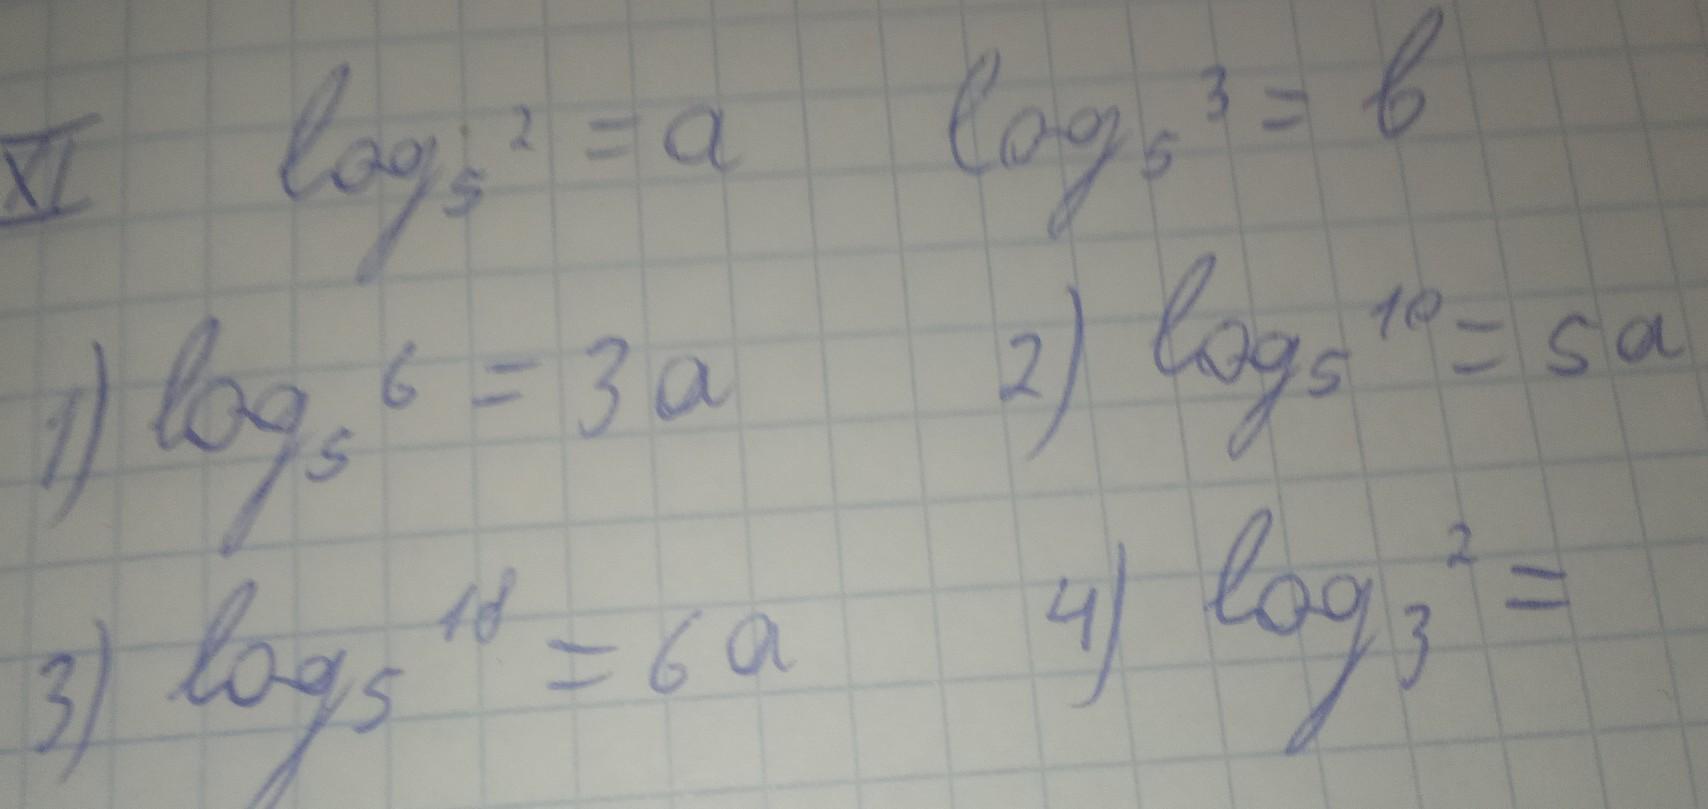 XI log₅ 2 = a log₅ 3 = b
1) log₅ 6 = 3a 2) log₅ 10 = 5a
3) log₅ 18 = 6a 4) log₃ 2 =